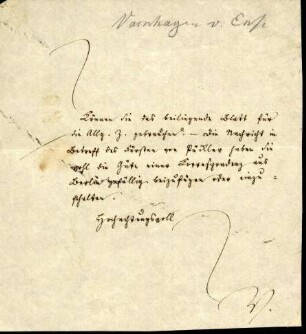 Varnhagen v. Ense
Können Sie das beiliegende Blatt für
die Allg. Z. gebrauchen? – Die Nachricht in
Betreff des Fürsten von Pückler haben Sie
wohl die Güte einer Correspondenz aus
Berlin gefällig beizufügen oder einzu-
schalten.
Hochachtungsvoll
V.